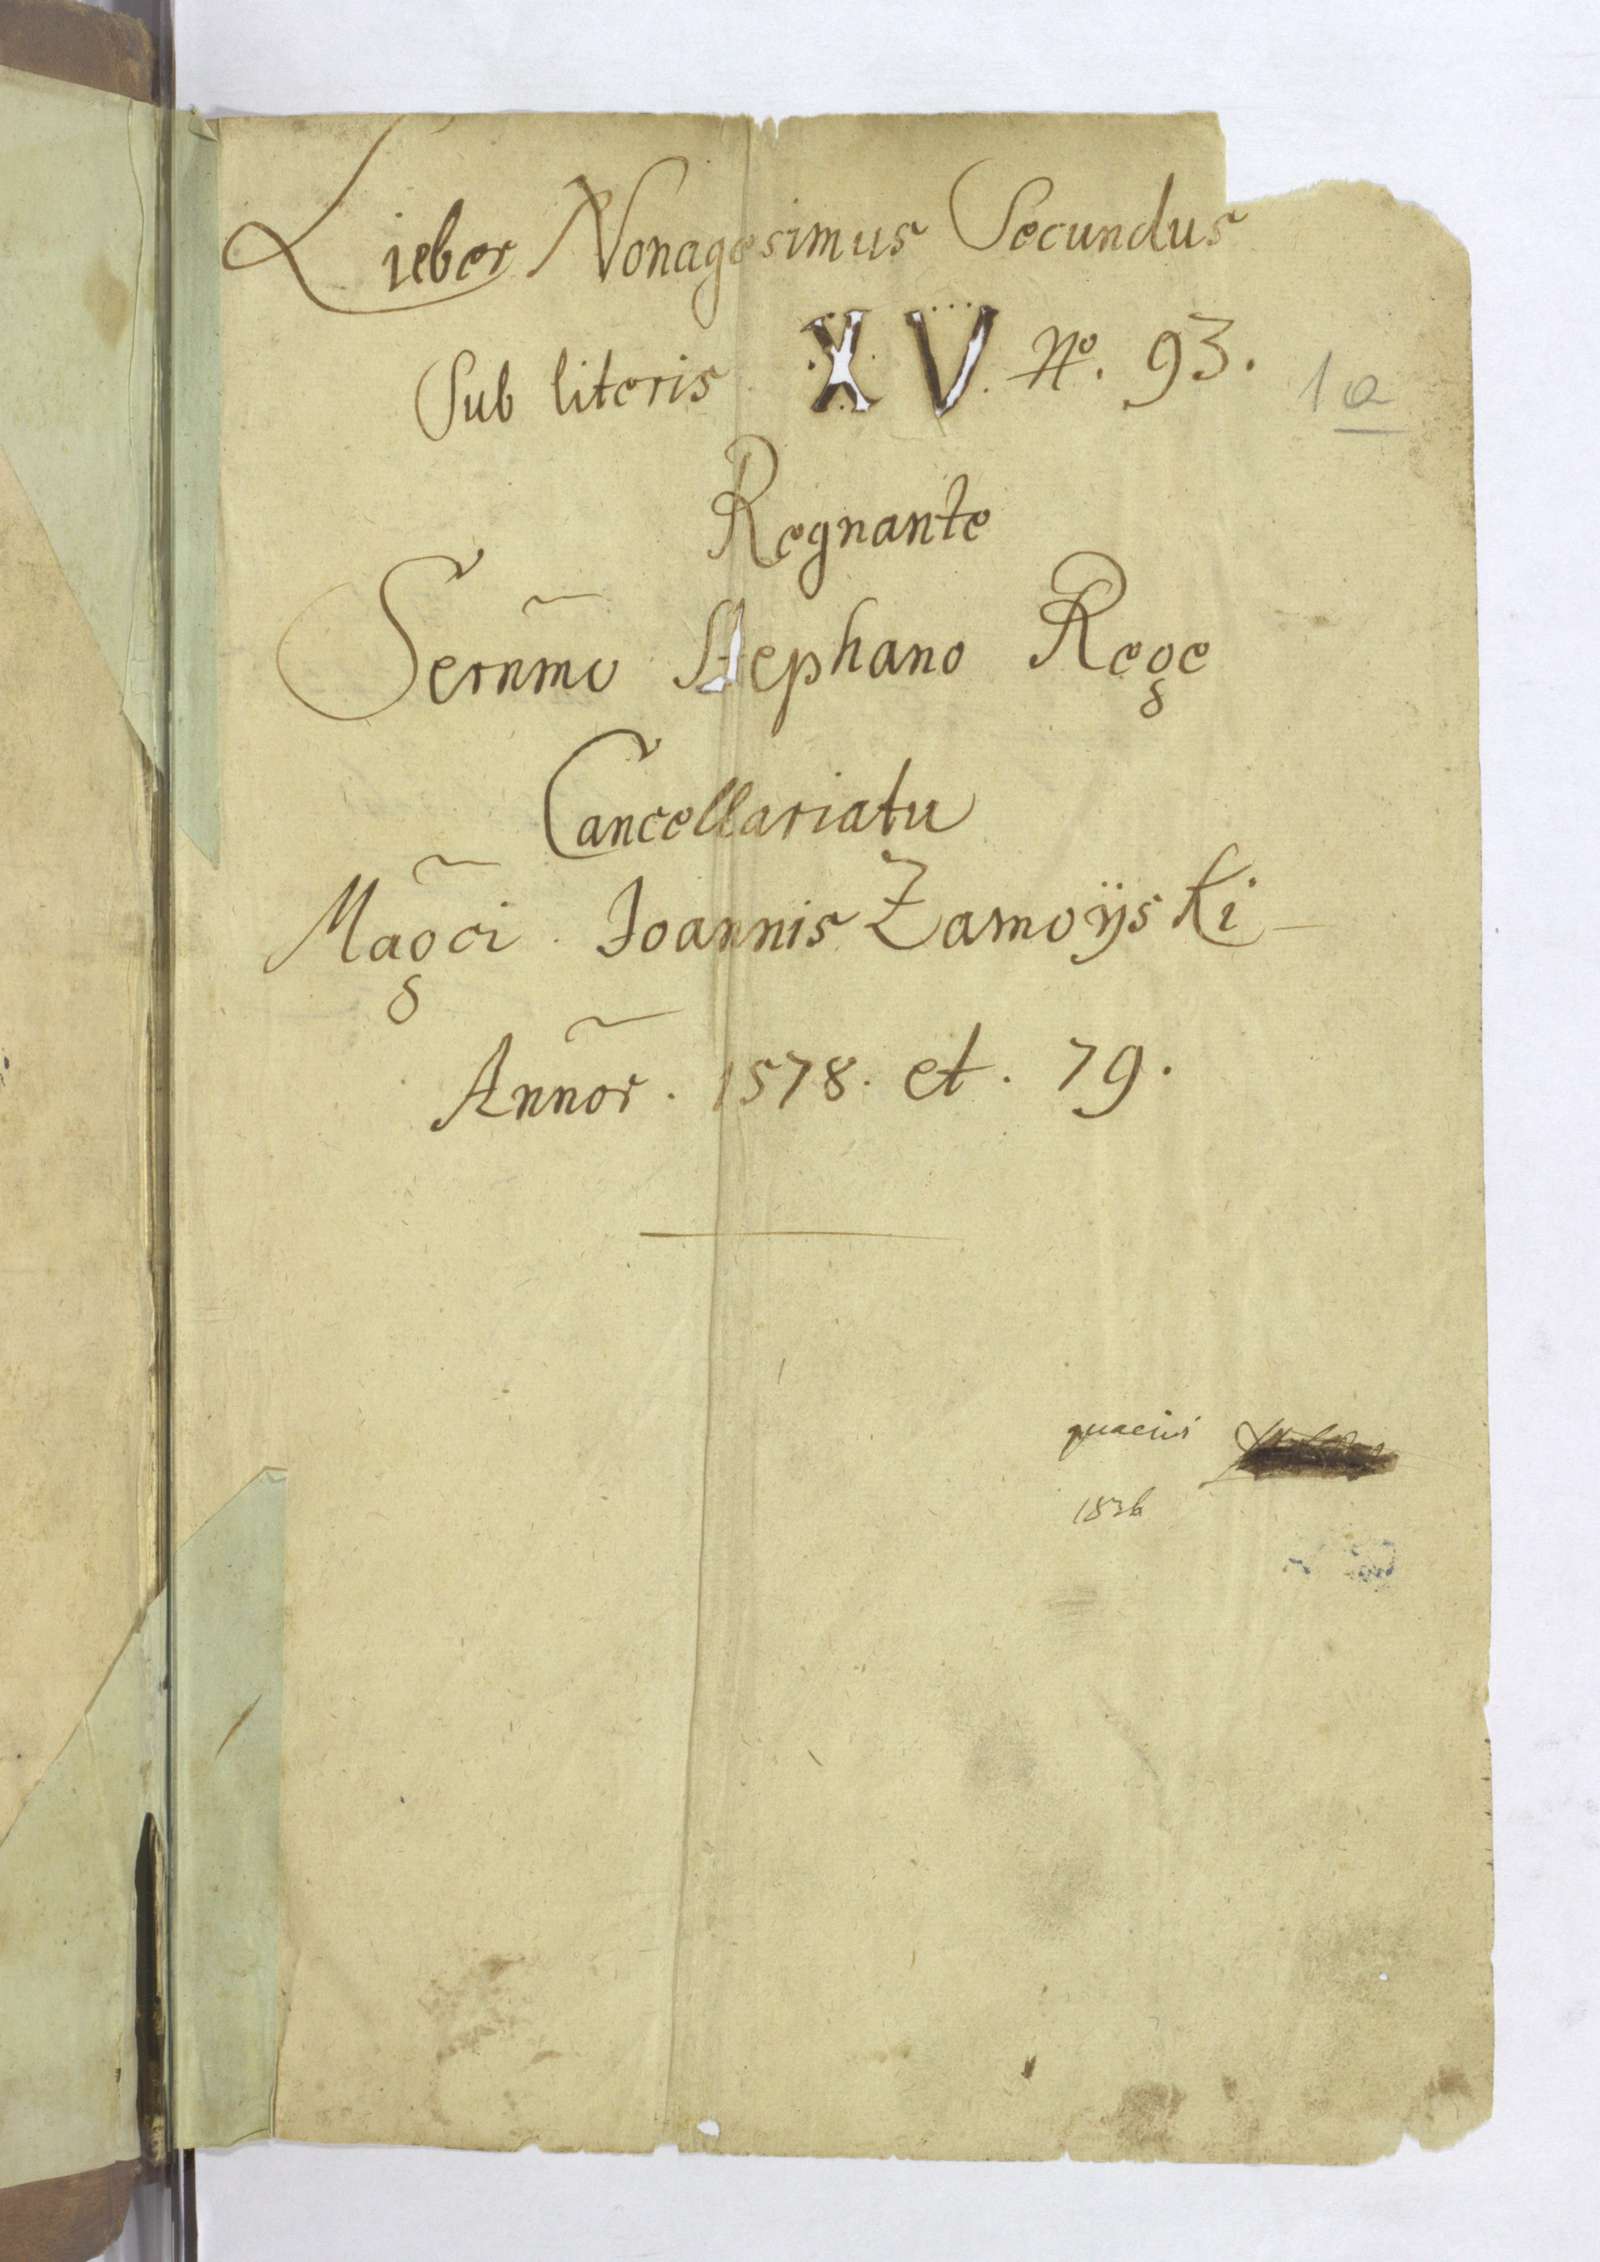 Lieber Nonagesimus Secundus
Sub literis X V. No. 93.
1a
Regnante
Sernmo Stephano Rege
Cancellariatu
Magci Joannis Zamoÿski
Annor. 1578. et. 79.